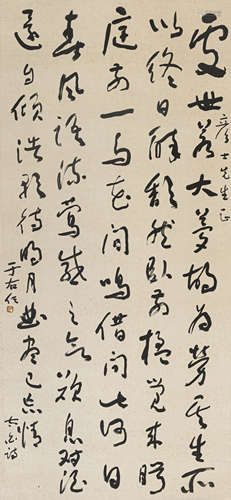 彥士先生正
處世若大夢胡為勞其生所
以終日醉頹然臥前楹覺來眄
庭前一鳥花間鳴借問此何日
春風語流鶯感之欲歎息對酒
還自傾浩歌待明月曲盡已忘情
太白詩
于右任